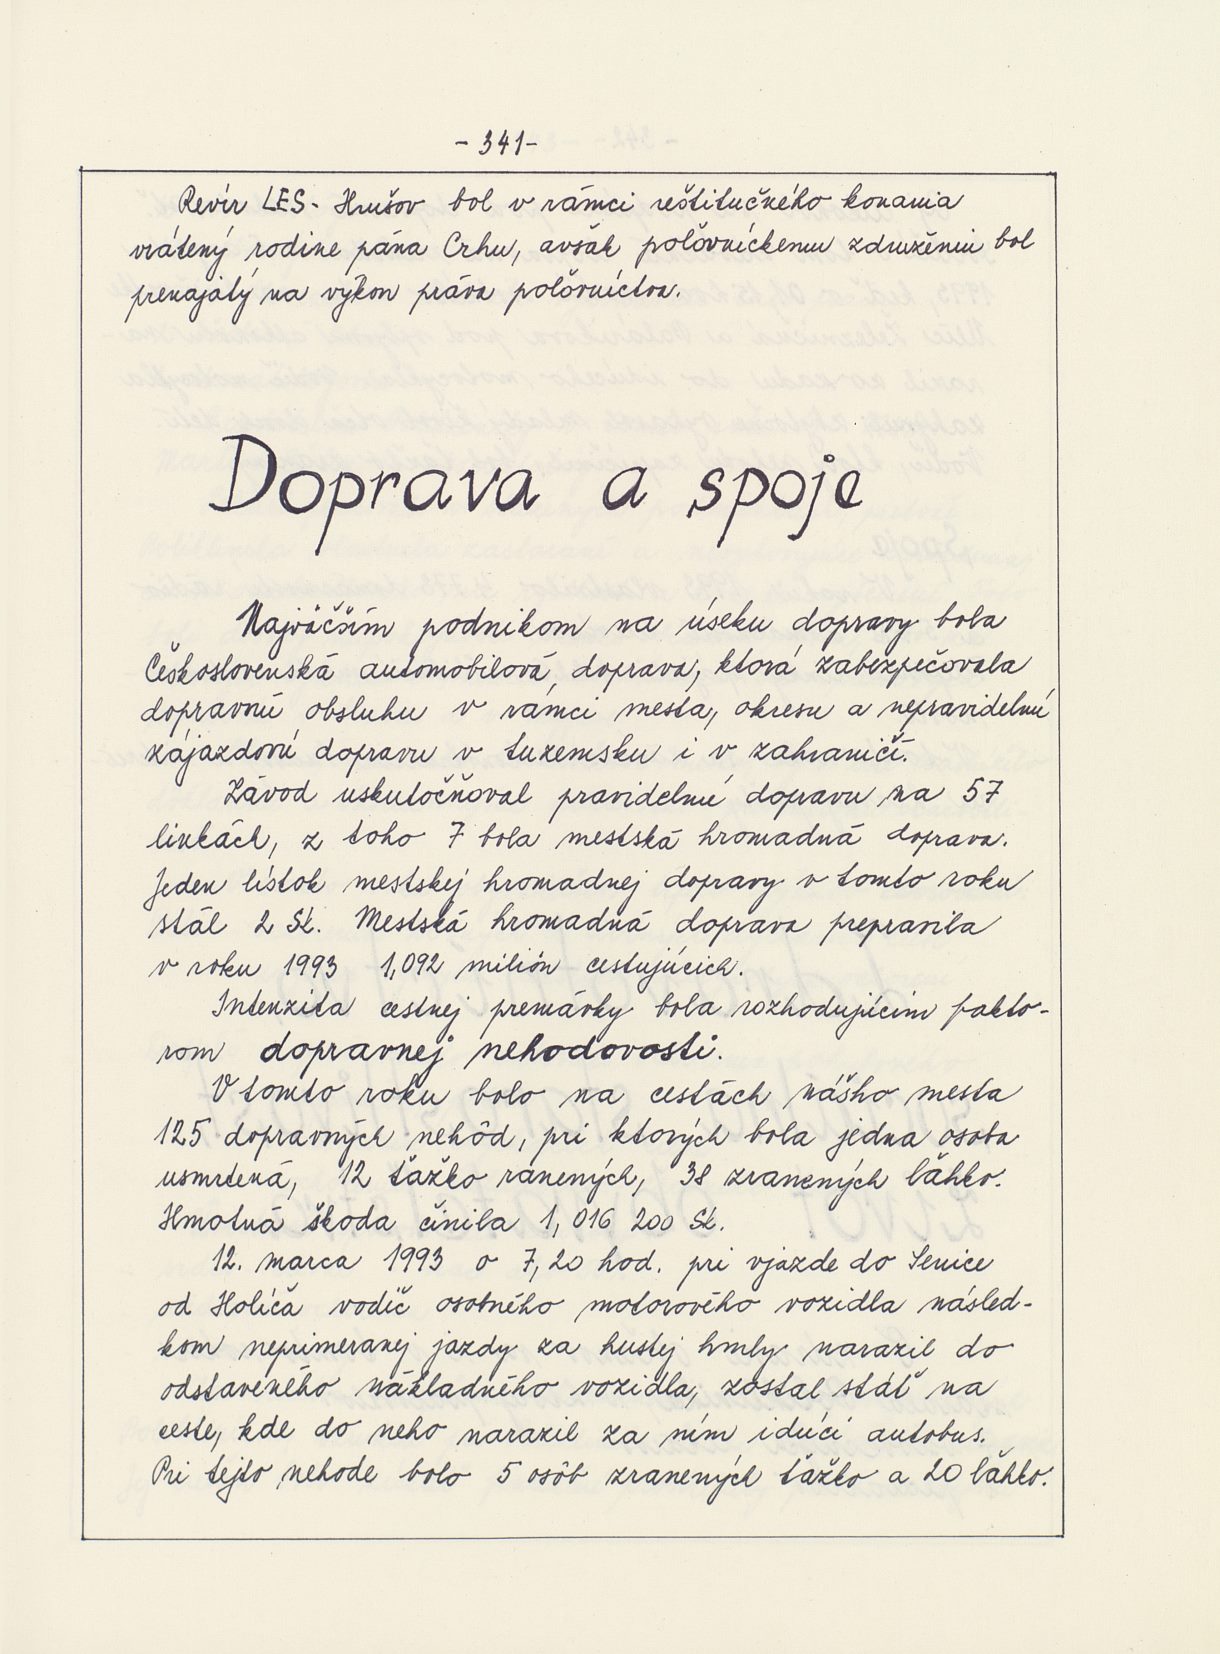 - 341 -
Revír LES - Hrušov bol v rámci reštitučného konania
vrátený rodine pána Crhu, avšak poľovníckemu združeniu bol
prenajatý na výkon práva poľovníctva.
Doprava a spoje
Najväčším podnikom na úseku dopravy bola
Československá automobilová doprava, ktorá zabezpečovala
dopravnú obsluhu v rámci mesta, okresu a nepravidelnú
zájazdovú dopravu v tuzemsku i v zahraničí.
Závod uskutočňoval pravidelnú dopravu na 57
linkách, z toho 7 bola mestská hromadná doprava.
Jeden lístok mestskej hromadnej dopravy v tomto roku
stál 2 Sk. Mestská hromadná doprava prepravila
v roku 1993 1,092 milión cestujúcich.
Intenzita cestnej premávky bola rozhodujúcim fakto-
rom dopravnej nehodovosti.
V tomto roku bolo na cestách nášho mesta
125 dopravných nehôd, pri ktorých bola jedna osoba
usmrtená, 12 ťažko ranených, 38 zranených ľahko.
Hmotná škoda činila 1,016 200 Sk.
12. marca 1993 o 7,20 hod. pri vjazde do Senice
od Holíča vodič osobného motorového vozidla násled-
kom neprimeranej jazdy za hustej hmly narazil do
odstaveného nákladného vozidla, zostal stáť na
ceste, kde do neho narazil za ním idúci autobus.
Pri tejto nehode bolo 5 osôb zranených ťažko a 20 ľahko.